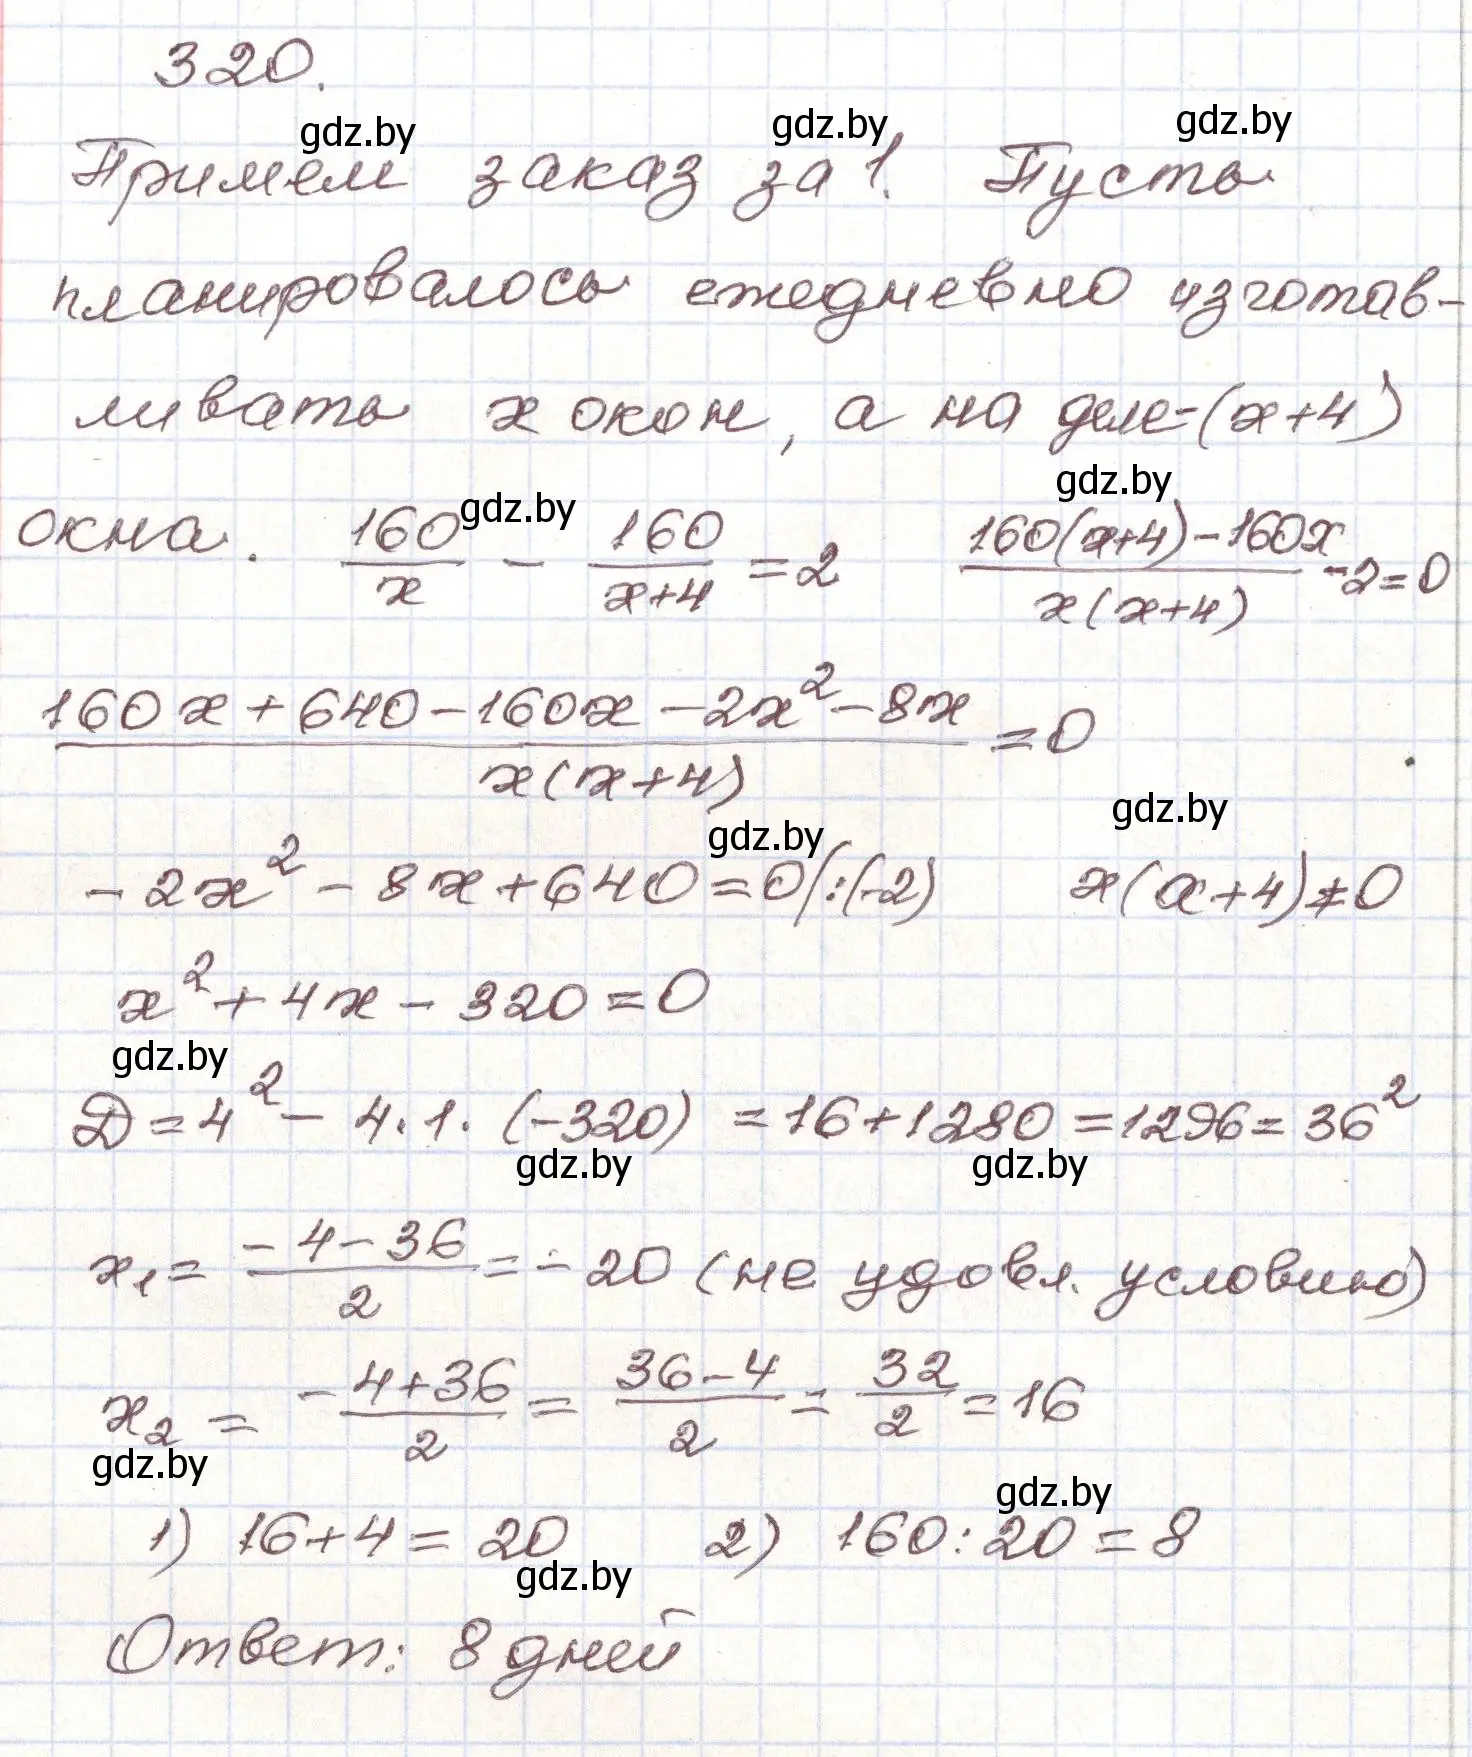 320.
gdz.by gdz.by gdz.by
Примем заказ за 1. Пусть
планировалось ежедневно изготав-
ливать x окон, а на деле-(x+4)
gdz.by gdz.by
окна. 160/x - 160/(x+4) =2 (160(x+4)-160x)/(x(x+4)) -2=0
(160x+640-160x-2x²-8x)/(x(x+4)) =0
gdz.by gdz.by
-2x²-8x+640=0|:(-2) x(x+4)≠0
x²+4x-320=0
gdz.by
Д=4²-4·1·(-320)=16+1280=1296=36²
gdz.by gdz.by
x₁= (-4-36)/2 =-20 (не удовл. условию)
x₂ = (-4+36)/2 = (36-4)/2 = 32/2 =16
gdz.by gdz.by
1) 16+4=20 2) 160:20=8
gdz.by
Ответ: 8 дней